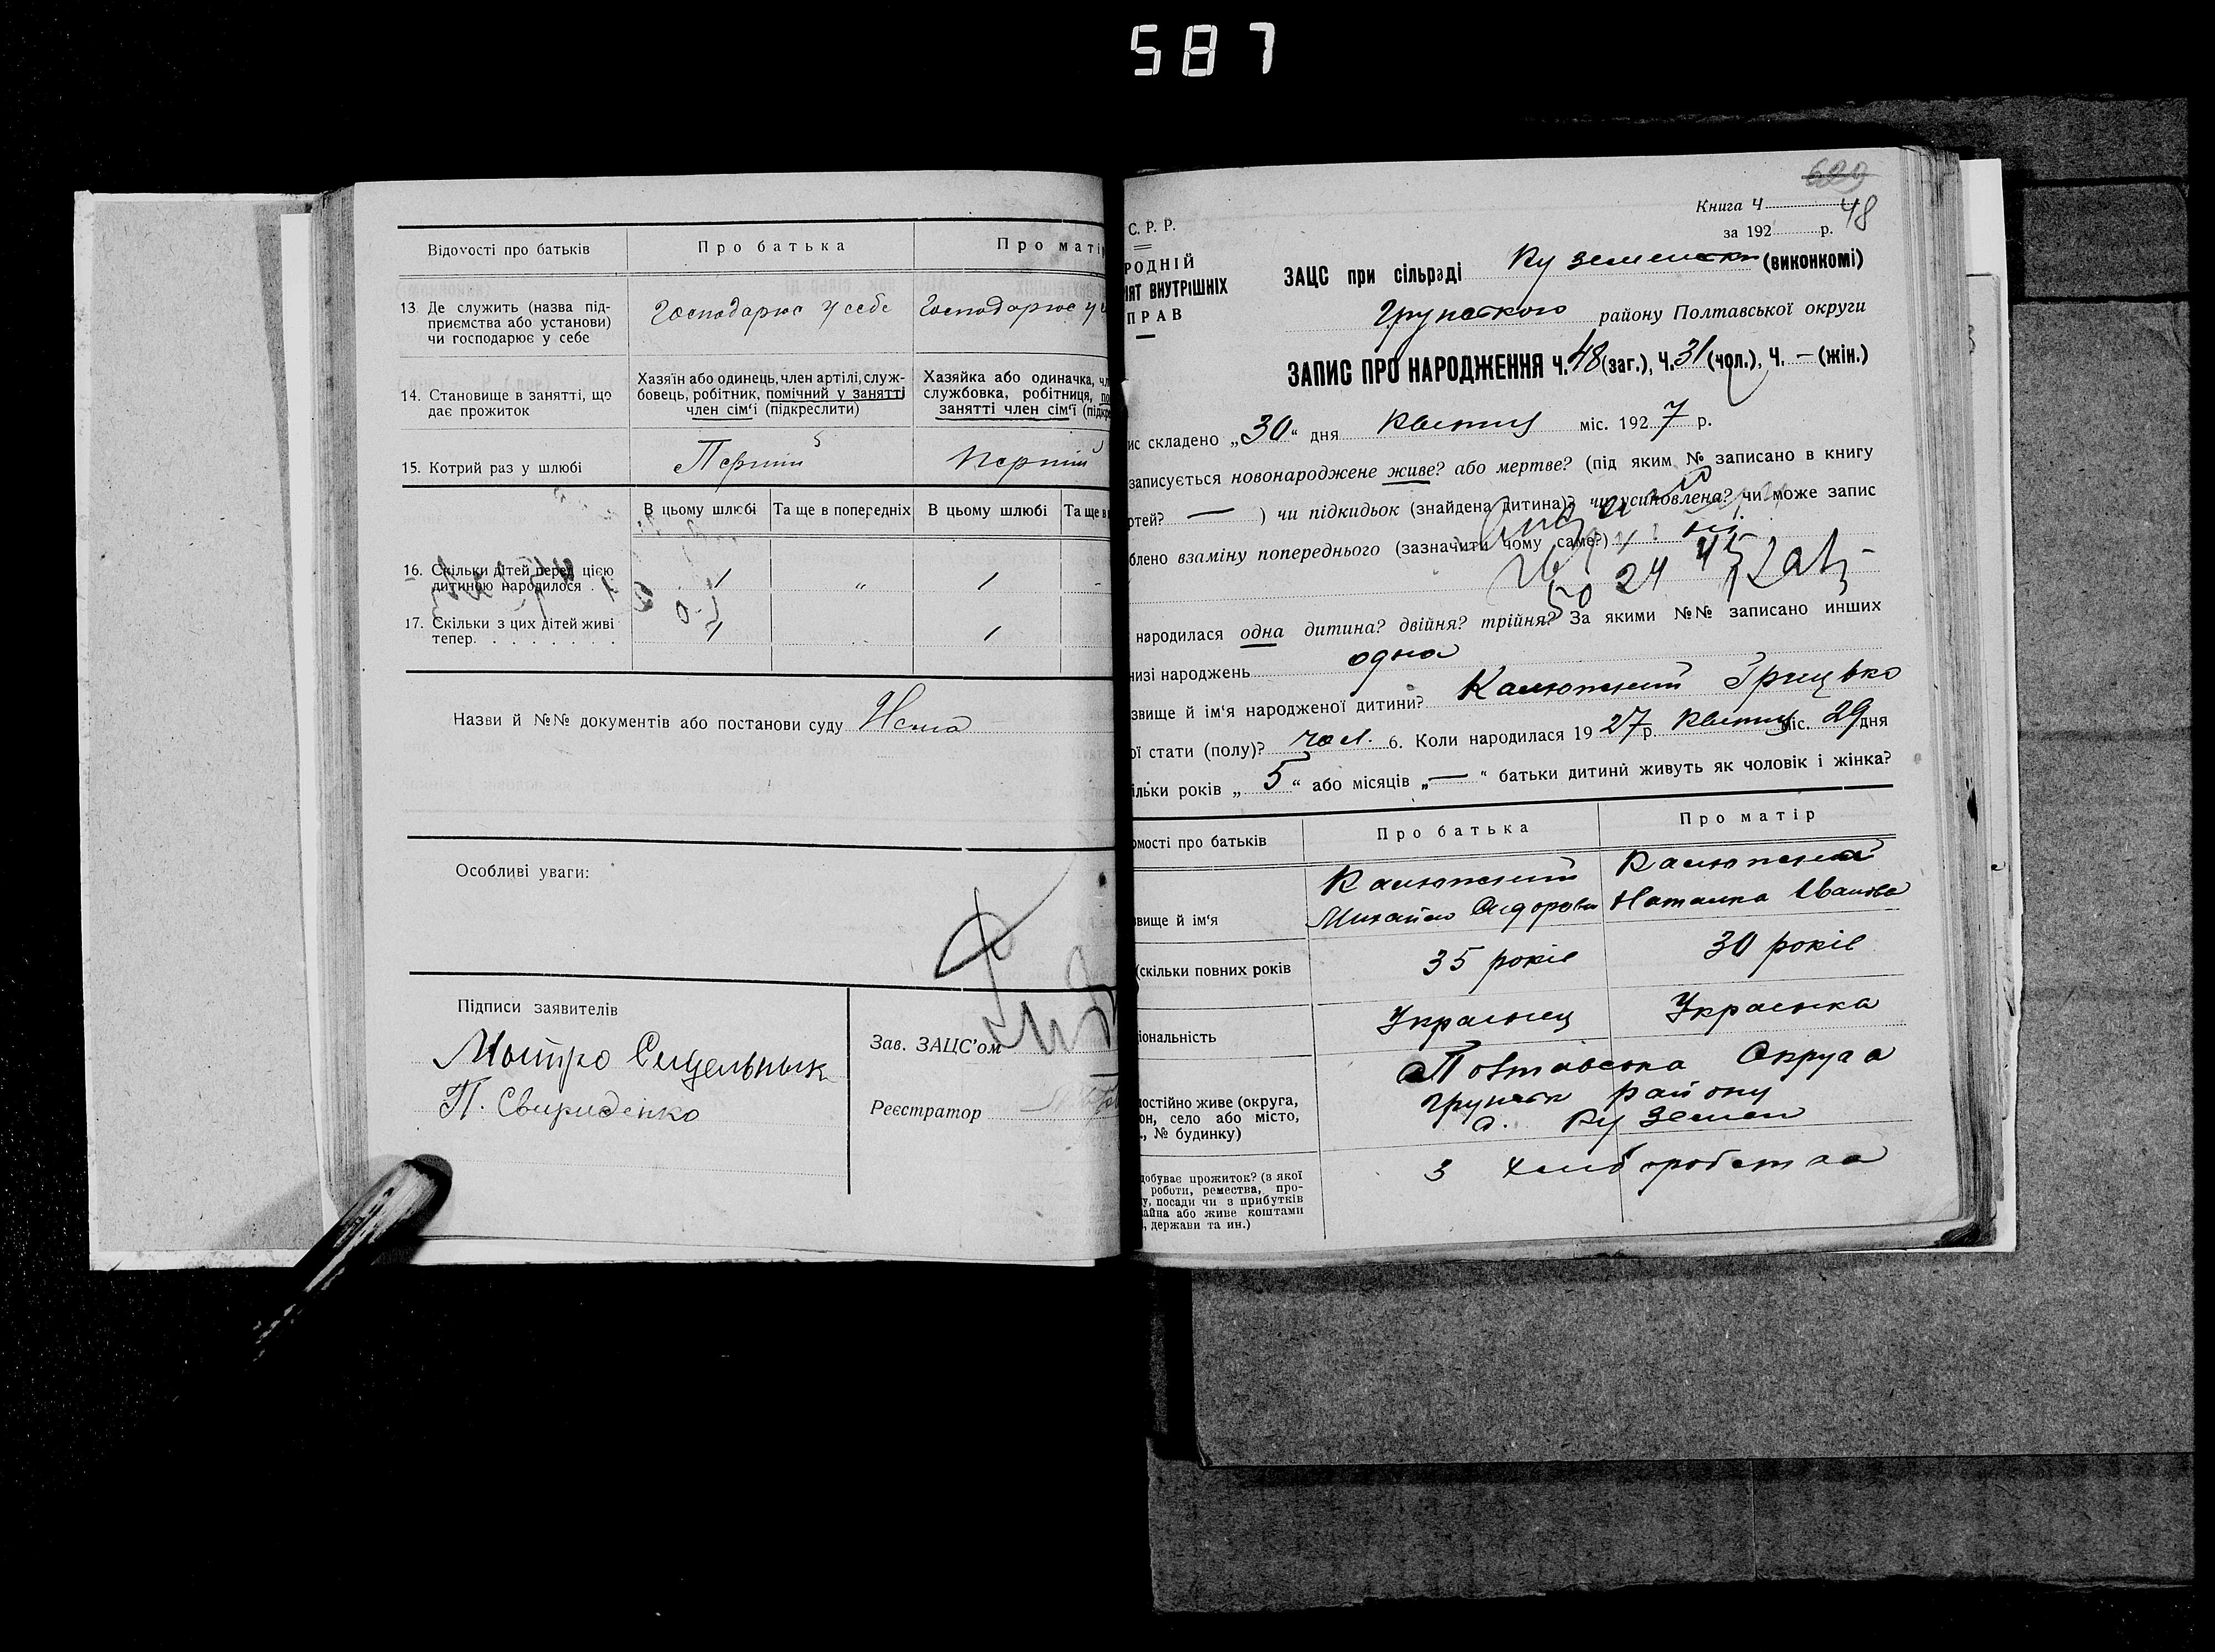 587
Відомості про батьків
Про батька
Про матір
13. Де служить (назва під-
приємства або установи)
чи господарює у себе
Господарює у себе
Господарює у
14. Становище в занятті, що
дає прожиток
Хазяїн або одинець, член артілі, служ-
бовець, робітник, помічний у занятті
член сім'ї (підкреслити)
Хазяйка або одиначка, чл
службовка, робітниця, по
занятті член сім'ї (підкре
15. Котрий раз у шлюбі
Перший
Перший
В цьому шлюбі
Та ще в попередніх
В цьому шлюбі
Та ще в
16. Скільки дітей перед цією
дитиною народилося .
1
"
1
-
17. Скільки з цих дітей живі
тепер. . . . . . . .
1
1
Назви й №№ документів або постанови суду Нема
Особливі уваги:
Підписи заявителів
П. Свириденко
Зав. ЗАЦС'ом
Реєстратор
629
Книга Ч.
48
за 192 р.
С. Р. Р.
РОДНІЙ
ІЯТ ВНУТРІШНІХ
ПРАВ
ЗАЦС при сільраді Куземенськ (виконкомі)
Грунського району Полтавської округи
ЗАПИС ПРО НАРОДЖЕННЯ Ч. 48 (заг.), Ч. 31 (чол.), Ч. — (жін.)
ис складено „30“ дня Квітня міс. 1927 р.
записується новонароджене живе? або мертве? (під яким № записано в книгу
ртей? — ) чи підкидьок (знайдена дитина)? чи усиновлена? чи може запис
блено взаміну попереднього (зазначити чому саме?)
народилася одна дитина? двійня? трійня? За якими №№ записано инших
низі народжень одна
звище й ім'я народженої дитини? Калюжний Грицько
ої стати (полу)? чол. 6. Коли народилася 1927 р. Квітня міс. 29 дня
ільки років „5“ або місяців „—“ батьки дитини живуть як чоловік і жінка?
омості про батьків
Про батька
Про матір
звище й ім'я
Калюжний
Михайло Сидоров
Калюжна
Наталка Іванова
(скільки повних років
35 років
30 років
іональність
Українец
Українка
постійно живе (округа,
он, село або місто,
., № будинку)
Полтавська Округа
Грунськ району
с. Куземен
добуває прожиток? (з якої
роботи, ремества, про-
у, посади чи з прибутків
айна або живе коштами
, держави та ин.)
З хліборобства